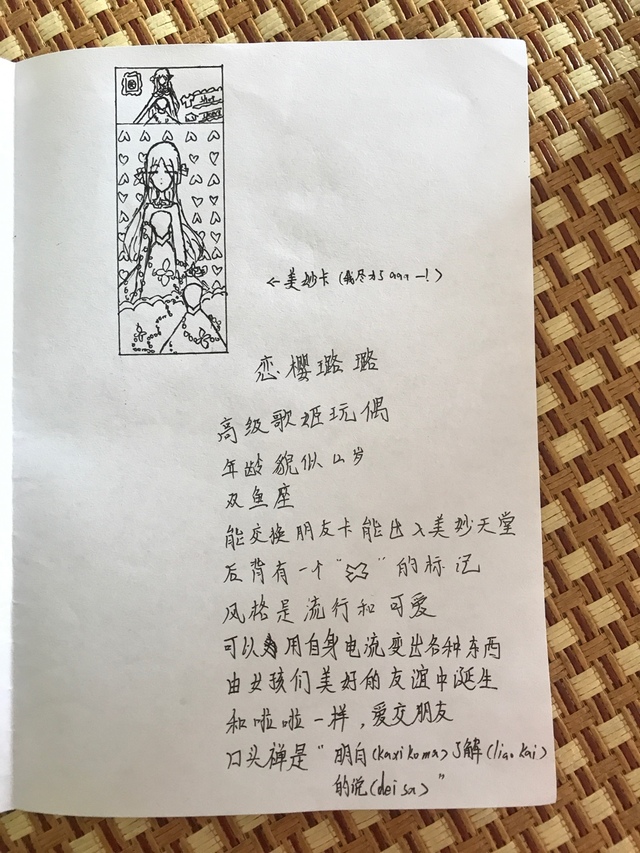 ←美妙卡(我尽力了qqq—!)
恋樱璐璐
高级歌姬玩偶
年龄貌似12岁
双鱼座
能交换朋友卡能出入美妙天堂
后背有一个“ ”的标记
风格是流行和可爱
可以用自身电流变出各种东西
由女孩们美好的友谊中诞生
和啦啦一样,爱交朋友
口头禅是“明白(kaxikoma)了解(liaokai)
的说(deisa)”